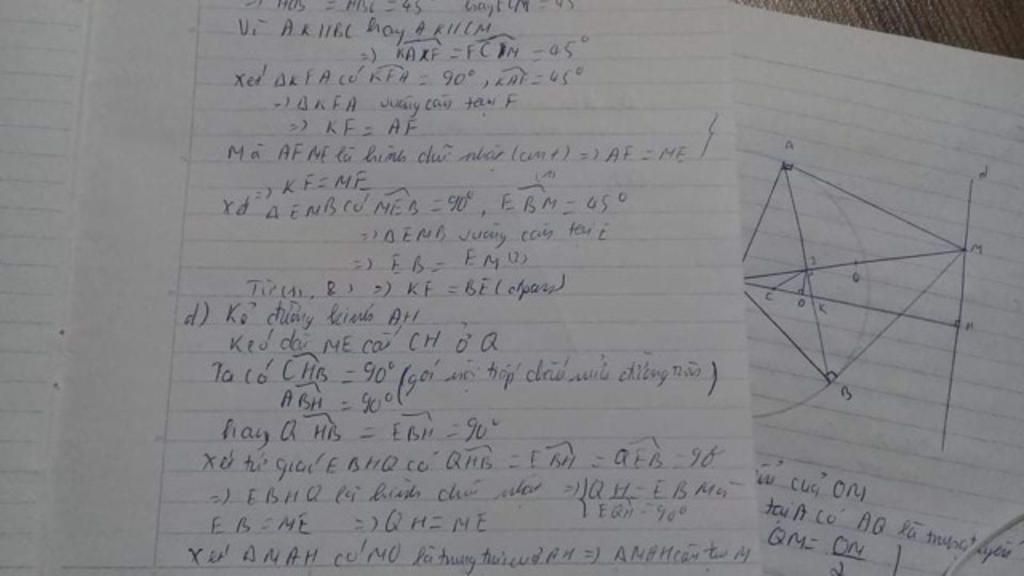 Vì AK//BC hay AK//CM
=> KAF = FCM = 45°
Xét ΔKFA có KFA = 90°, KAF = 45°
=> ΔKFA vuông cân tại F
=> KF = AF
Mà AFME là hình chữ nhật (cmt) => AF = ME
=> KF = ME (1)
Xét ΔEMB có MEB = 90°, EBM = 45°
=> ΔEMB vuông cân tại E
=> EB = EM (2)
Từ (1, 2) => KF = BE (đpcm)
d) Kẻ đường kính AH
Kéo dài ME cắt CH ở Q
Ta có CHB = 90° (góc nội tiếp chắn nửa đường tròn)
ABH = 90°
hay QHB = EBH = 90°
Xét tứ giác EBHQ có QHB = EBH = QEB = 90°
=> EBHQ là hình chữ nhật => QH = EB Mà
EQH = 90°
EB = ME => QH = ME
Xét ΔMAH có MO là trung trực của AH => ΔMAH cân tại M
A
d
M
I
Q
C
O
K
H
B
của OM
tại A có AQ là trung tuyến
QM = OM
2